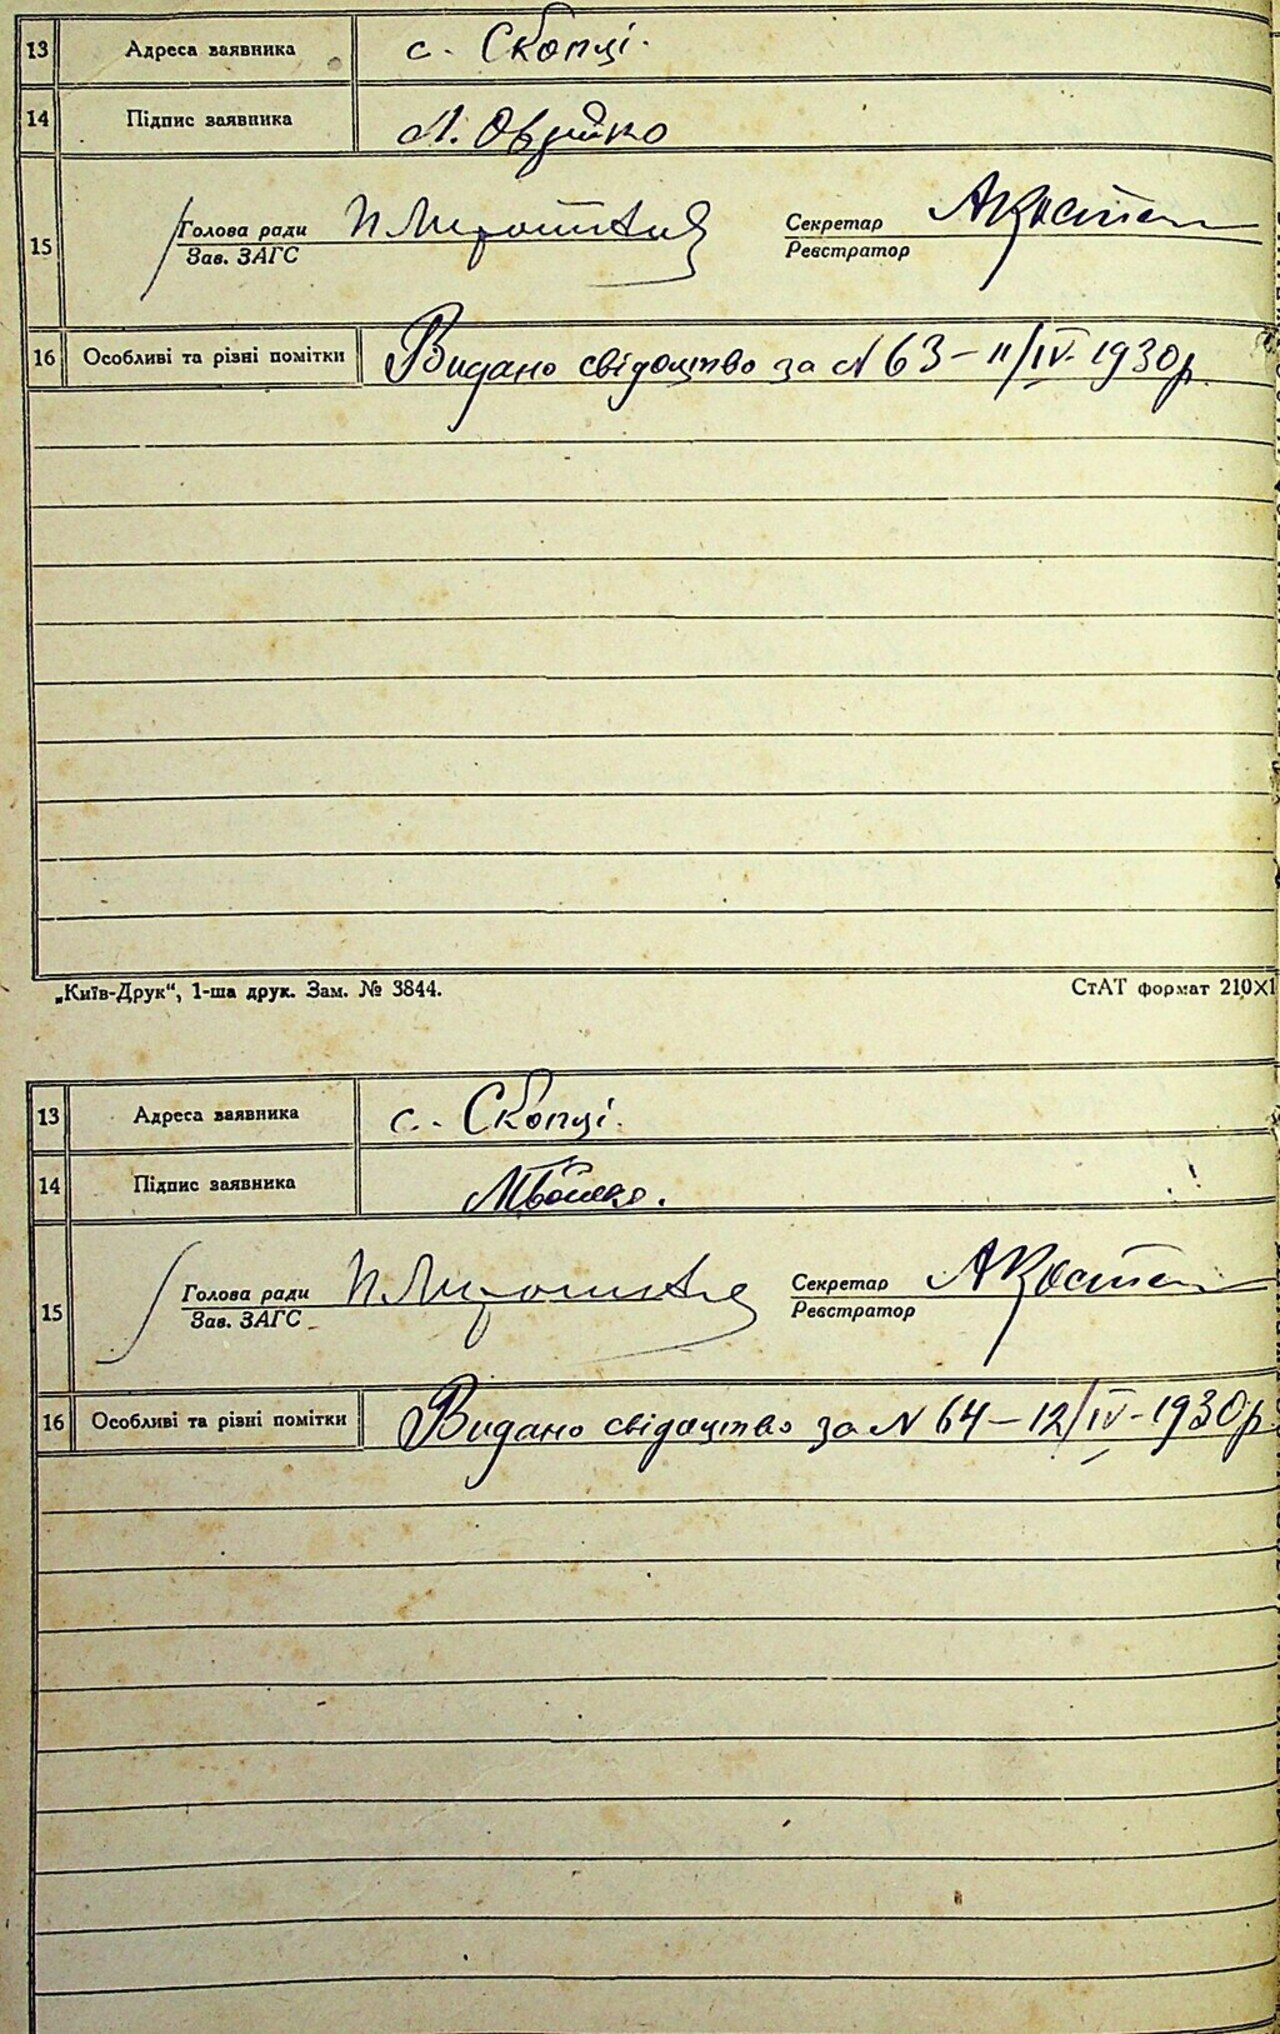 13 Адреса заявника с. Скопці.
14 Підпис заявника
15 Голова ради Секретар
Зав. ЗАГС Реєстратор
16 Особливі та різні помітки Видано свідоцтво за N 63 – 11/IV – 1930 р.
„Київ-Друк“, 1-ша друк. Зам. № 3844. СтАТ формат 210X1
13 Адреса заявника с. Скопці.
14 Підпис заявника
15 Голова ради Секретар
Зав. ЗАГС Реєстратор
16 Особливі та різні помітки Видано свідоцтво за N 64 – 12/IV – 1930 р